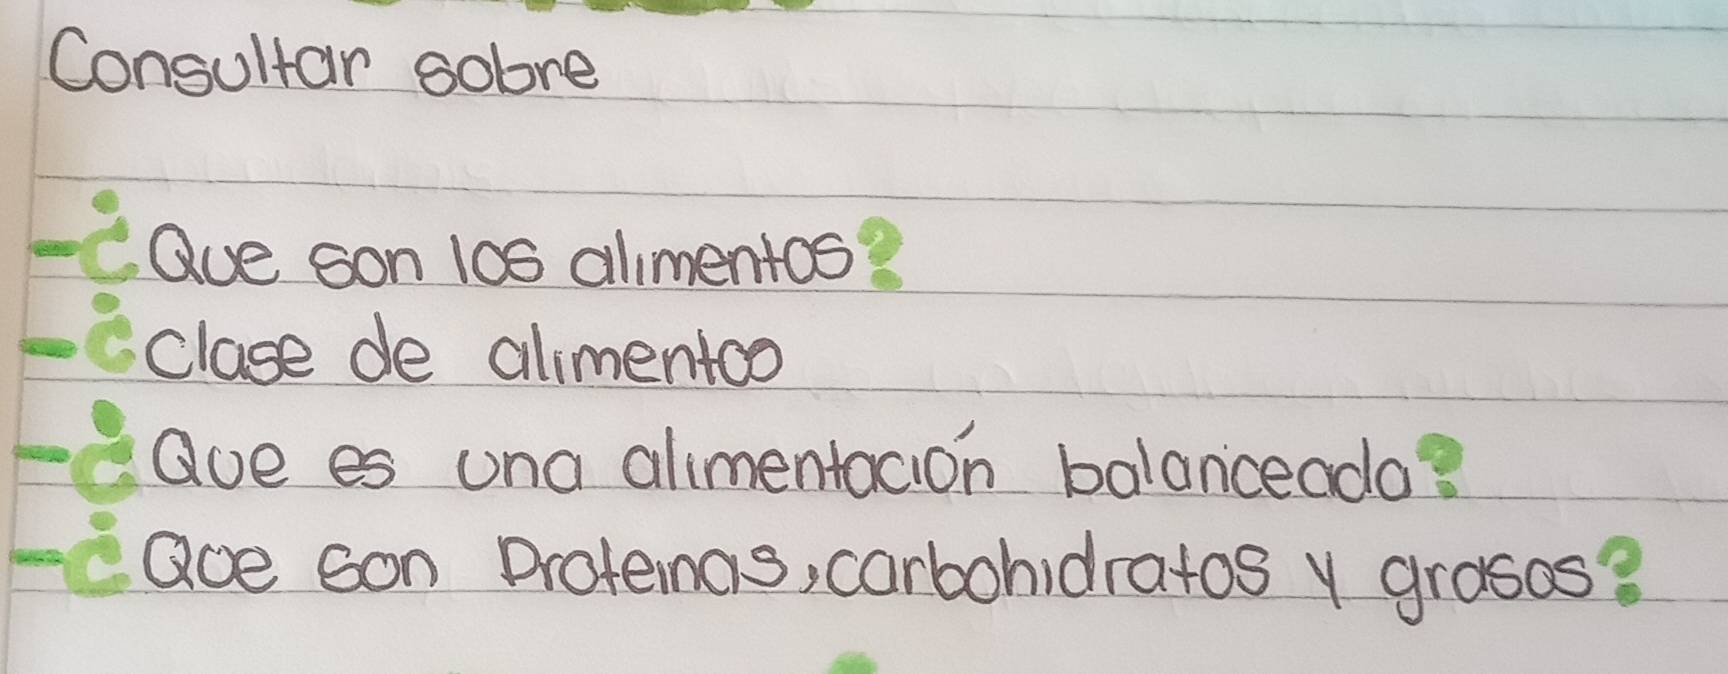 Consultar sobre
-¿Que son los alimentos?
-¿Clase de alimentos
-¿Que es una alimentación balanceada?
-¿Que son Proteinas, carbohidratos y grasas?